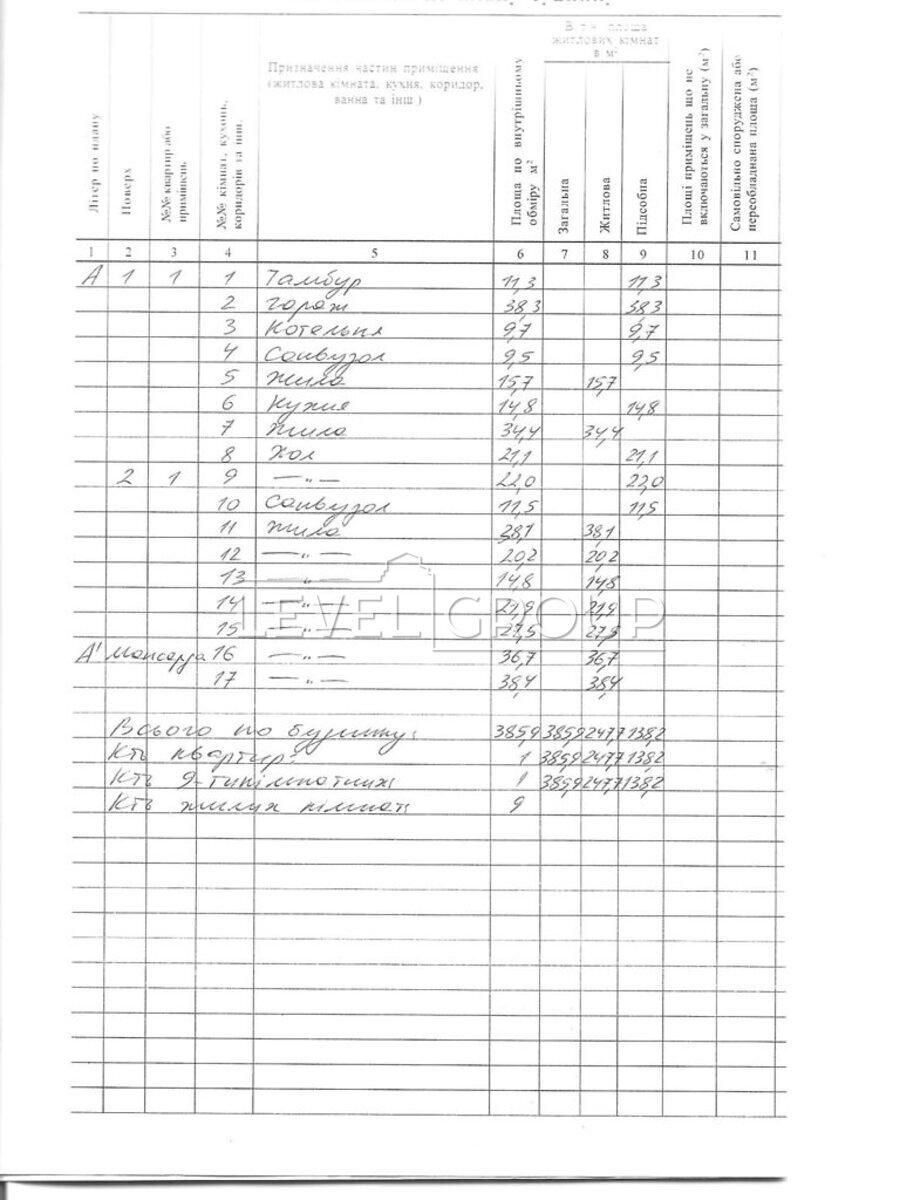 В т.ч. площа житлових кімнат в м²
Літер по плану
Поверх
№№ квартир або приміщень
№№ кімнат, кухонь, коридорів та інш.
Призначення частин приміщення (житлова кімната, кухня, коридор, ванна та інш.)
Площа по внутрішньому обміру м²
Загальна
Житлова
Підсобна
Площі приміщень що не включаються у загальну (м²)
Самовільно споруджена або переобладнана площа (м²)
1 2 3 4 5 6 7 8 9 10 11
А 1 1 1 Тамбур 11,3 11,3
2 Гараж 38,3 38,3
3 Котельня 9,7 9,7
4 Санвузол 9,5 9,5
5 Жила 15,7 15,7
6 Кухня 14,8 14,8
7 Жила 34,4 34,4
8 Хол 21,1 21,1
2 1 9 —„— 22,0 22,0
10 Санвузол 11,5 11,5
11 Жила 38,1 38,1
12 —„— 20,2 20,2
13 —„— 14,8 14,8
14 —„— 21,9 21,9
LEVEL GROUP
15 —„— 27,5 27,5
А' Мансарда 16 —„— 36,7 36,7
17 —„— 38,4 38,4
Всього по будинку: 385,9 385,9 247,7 138,2
Кть квартир: 1 385,9 247,7 138,2
Кть 9-тикімнатних 1 385,9 247,7 138,2
Кть жилих кімнат 9